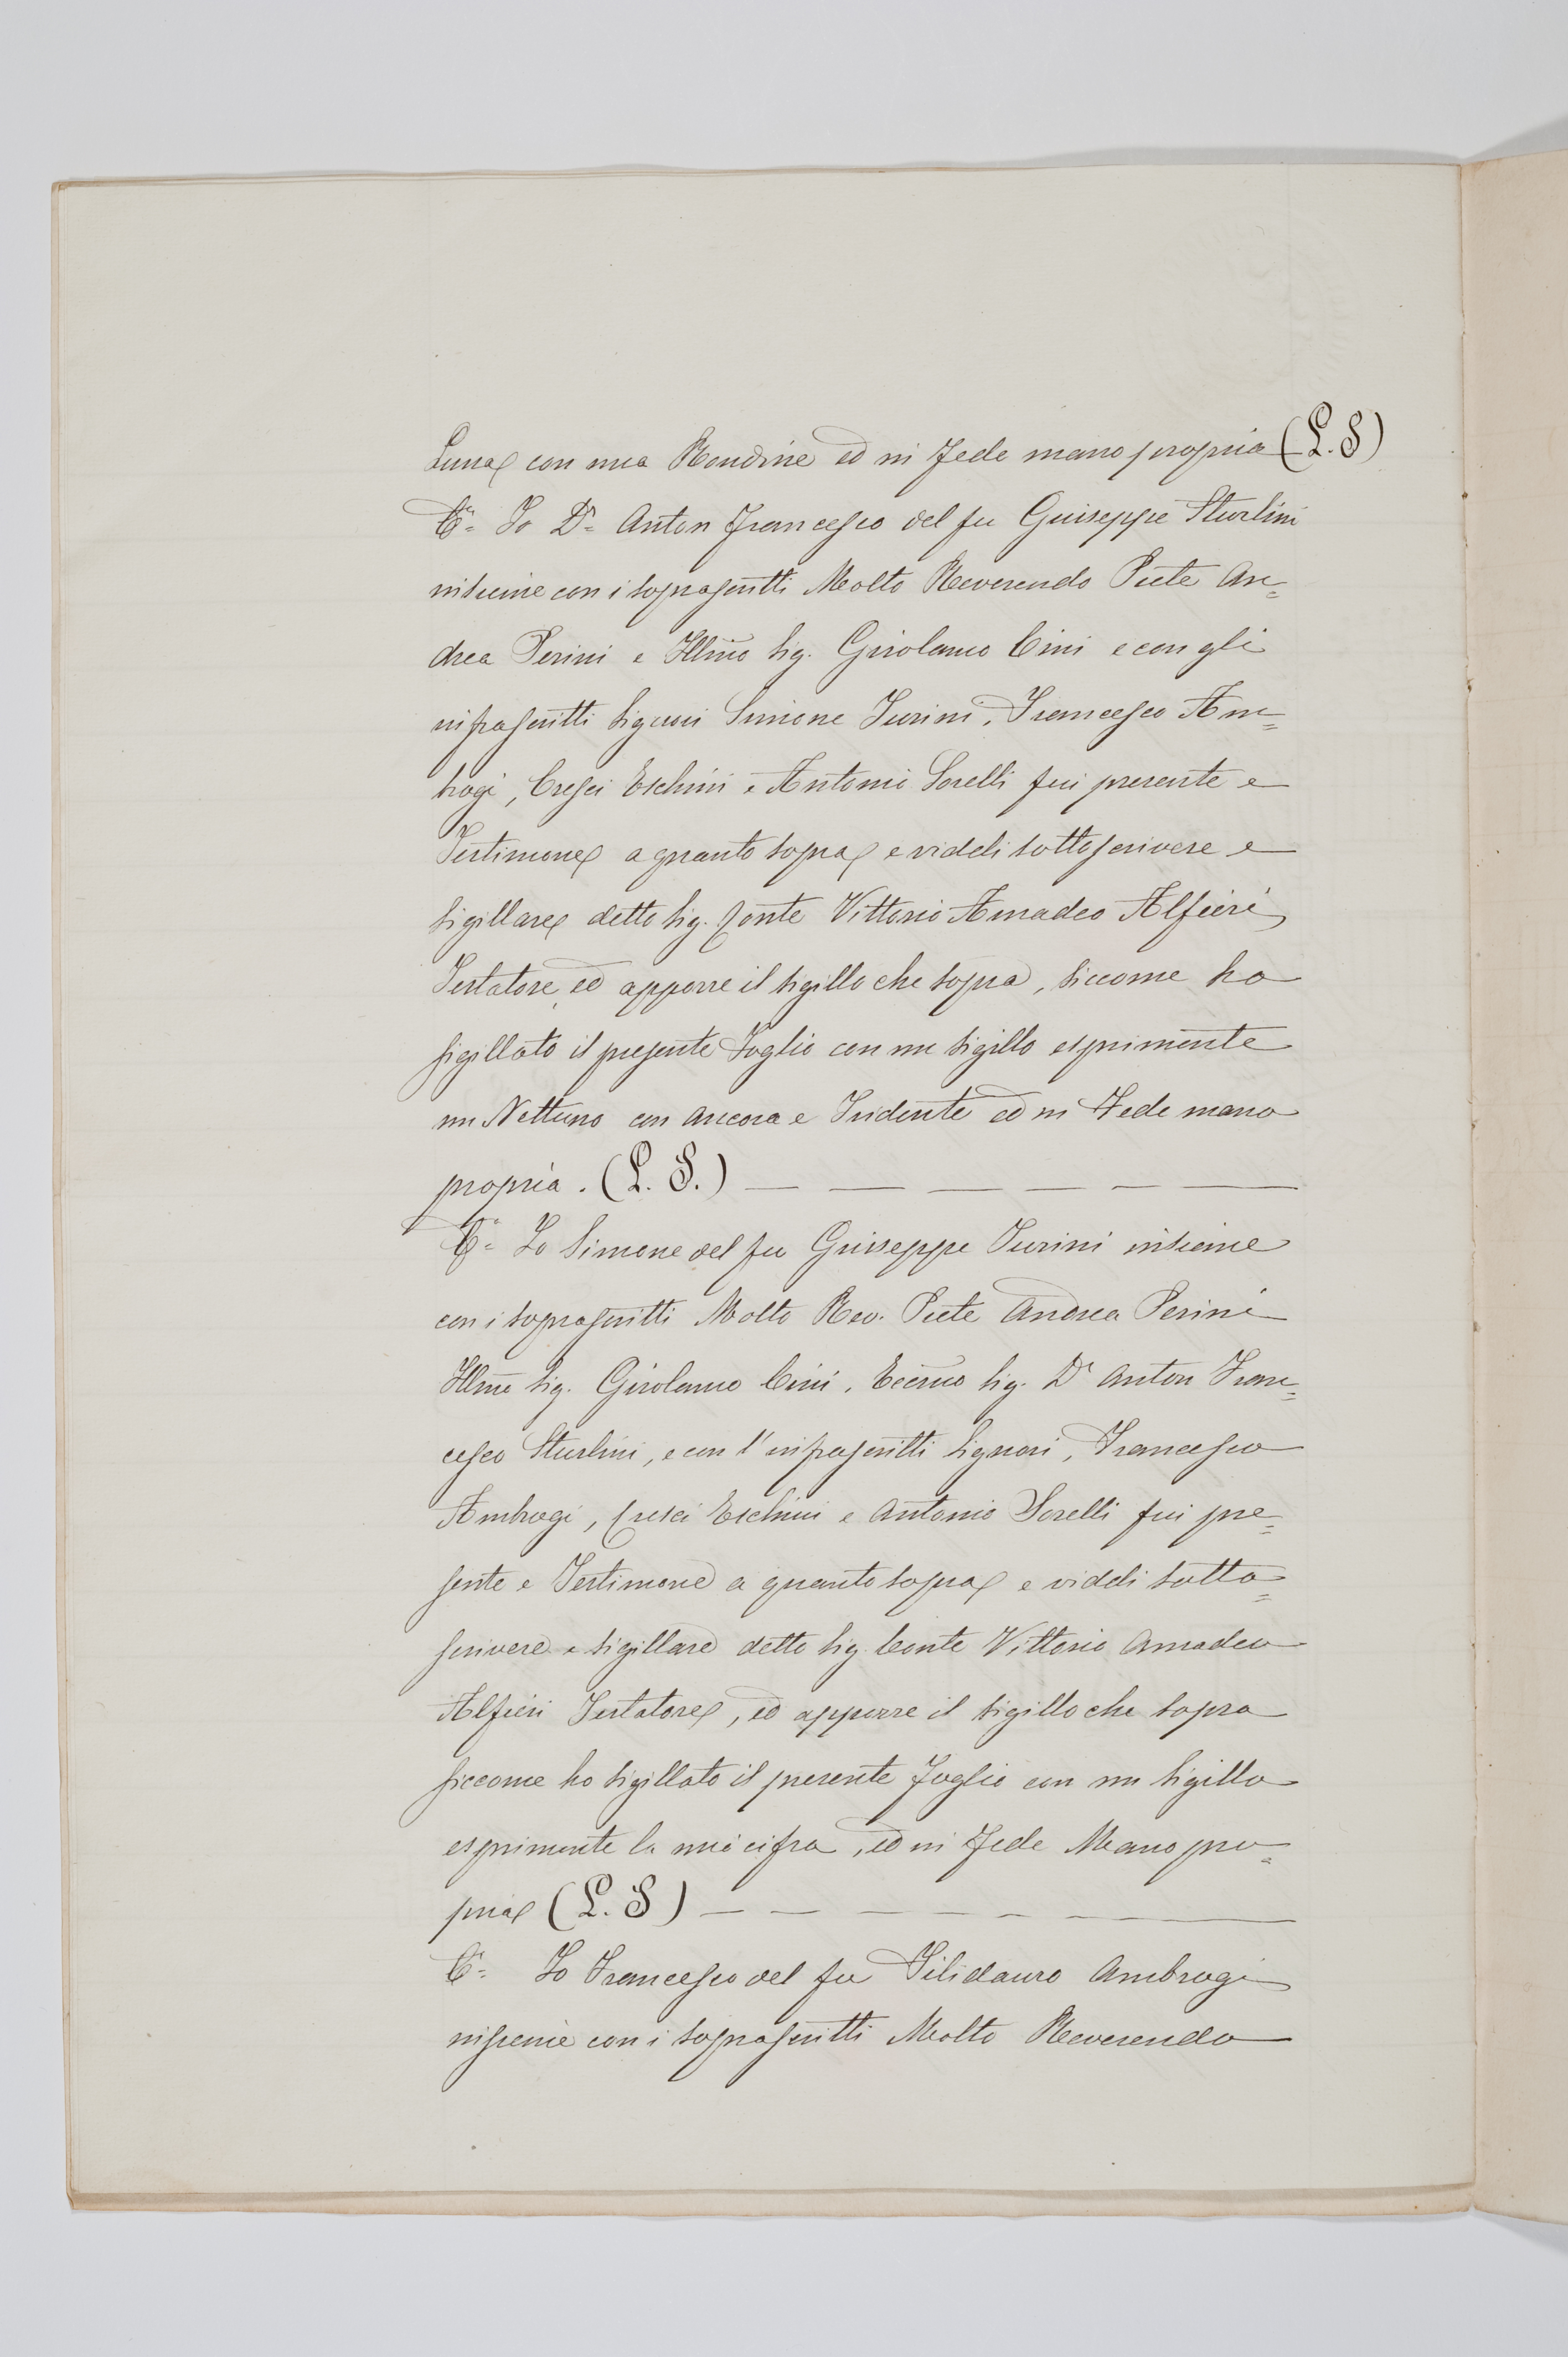 Luna con una Rondine ed in Fede mano propria (L. S)
C.a Io D.r Anton Francesco del fu Giuseppe Sturlini
insieme con i soprascritti Molto Reverendo Prete An=
drea Perini e Illmo Sig. Girolamo Cini e con gli
infrascritti Signori Simone Turini, Francesco Am=
brogi, Cresci Eschini e Antonio Sorelli fui presente e
Testimone a quanto sopra e viddi sottoscrivere e
sigillare detto Sig. Conte Vittorio Amadeo Alfieri
Testatore, ed apporre il sigillo che sopra, siccome ho
sigillato il presente Foglio con un sigillo esprimente
un Nettuno con ancora e Tridente ed in Fede mano
propria. (L. S.) — — — — — —
C.a Io Simone del fu Giuseppe Turini insieme
con i soprascritti Molto Rev. Prete Andrea Perini
Illmo Sig. Girolamo Cini, Eccmo Sig. Dr Anton Fran=
cesco Sturlini, e con l'infrascritti Signori, Francesco
Ambrogi, Cresci Eschini e Antonio Sorelli fui pre=
sente e Testimone a quanto sopra e viddi sotto=
scrivere e sigillare detto Sig. Conte Vittorio Amadeo
Alfieri Testatore, ed apporre il sigillo che sopra
siccome ho sigillato il presente Foglio con un sigillo
esprimente la mia cifra, ed in Fede Mano pro=
pria (L. S) — — — — — —
C.a Io Francesco del fu Filidauro Ambrogi
insieme con i soprascritti Molto Reverendo